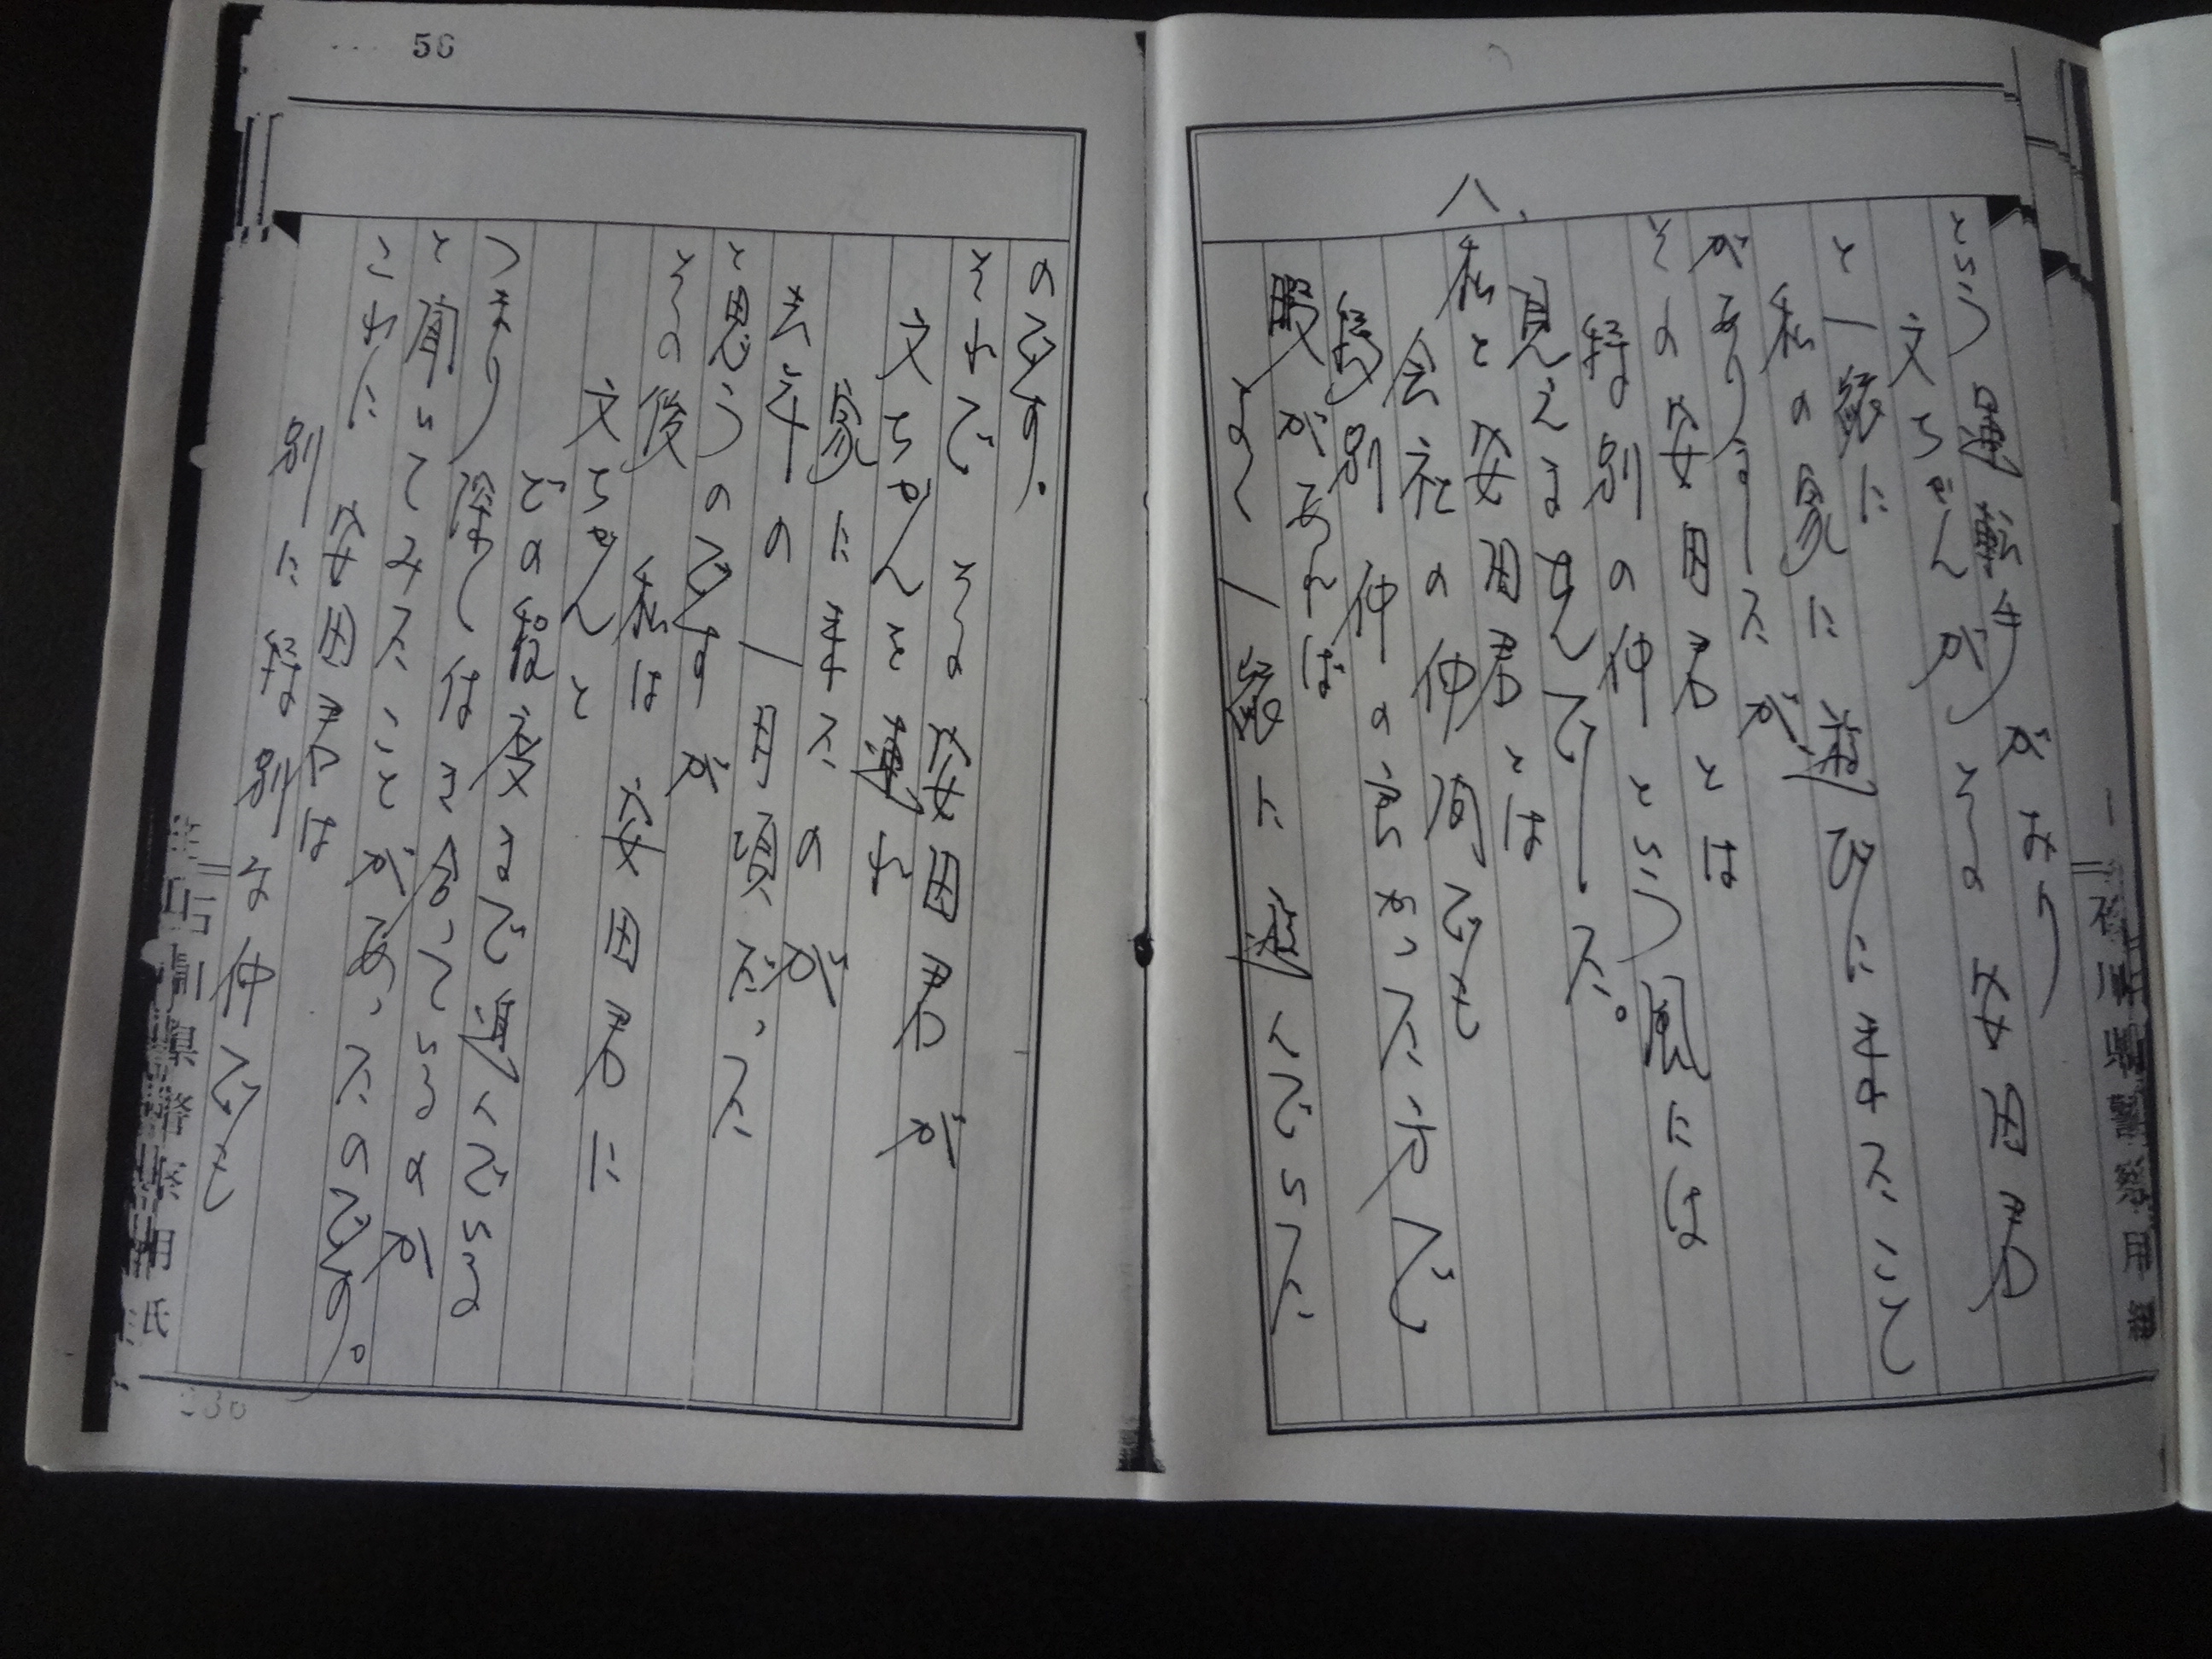 という運転手がおり
文ちゃんがその安田君
と一緒に
私の家に遊びにきたこと
がありましたが
その安田君とは
特別の仲という風には
見えませんでした。
八、
私と安田君とは
会社の仲間でも
特別仲の良かった方で
暇があれば
よく一緒に遊んでいた
56
のです。
それで その安田君が
文ちゃんを連れ
家にきたのが
去年の一月頃だった
と思うのですが
その後 私は 安田君に
文ちゃんと
どの程度まで進んでいる
つまり 深く付き合っているのか
と聞いてみたことがあったのです。
これに 安田君は
別に特別な仲でも